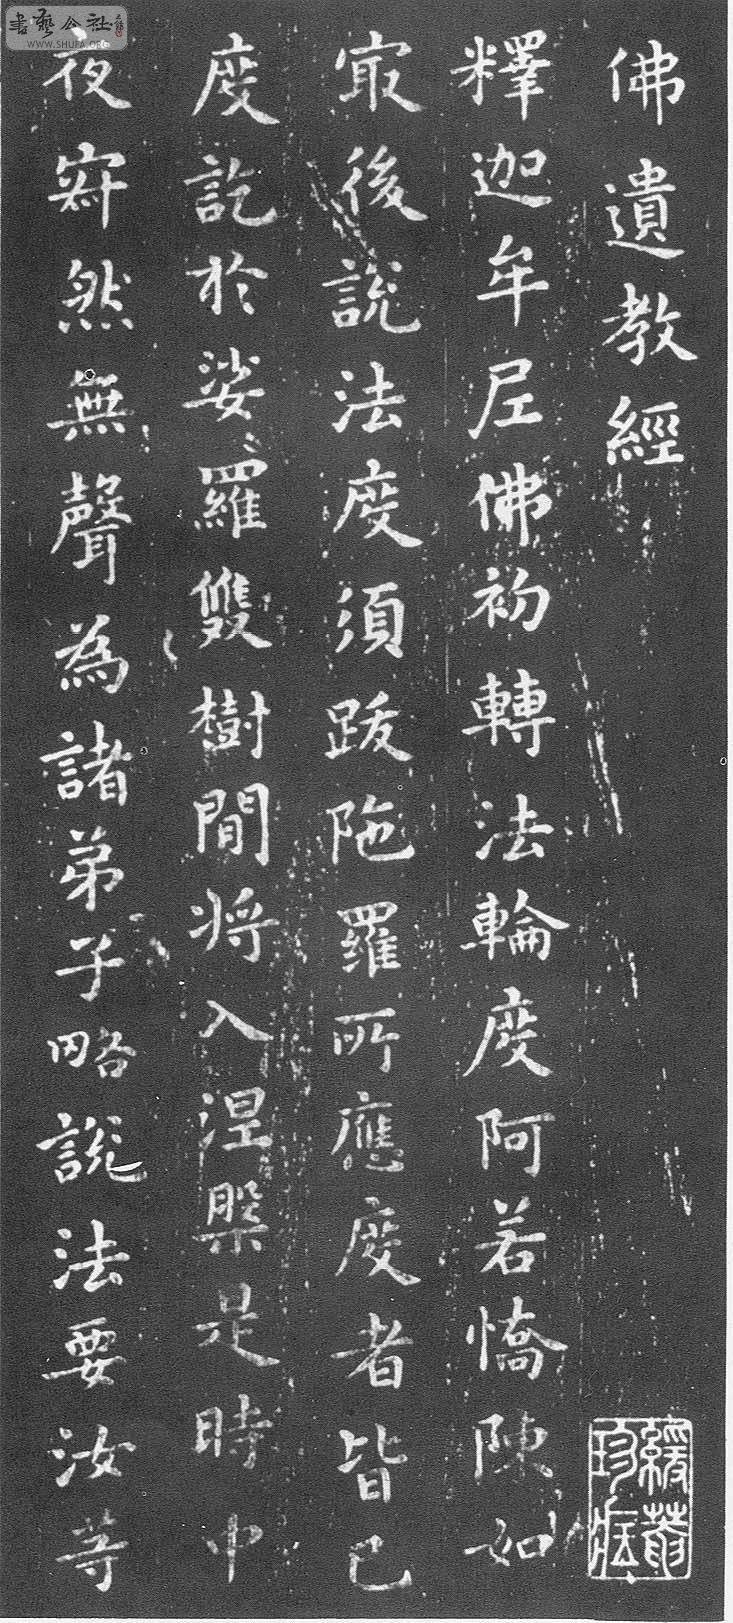 書藝公社
WWW.SHUFA.ORG
佛遺教經
釋迦牟尼佛初轉法輪度阿若憍陳如
冣後說法度須跋陁羅所應度者皆已
度訖於娑羅雙樹間將入涅槃是時中
夜寂然無聲為諸弟子略說法要汝等